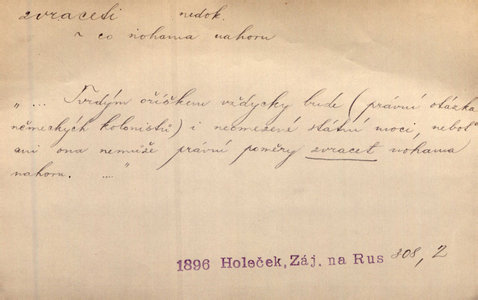 zvraceti nedok.
z co nohama nahoru
„... Tvrdým oříškem vždycky bude (právní otázka
německých kolonistů) i neomezené státní moci, neboť
ani ona nemůže právní poměry zvracet nohama
nahoru. ...“
1896 Holeček, Záj. na Rus 308, 2